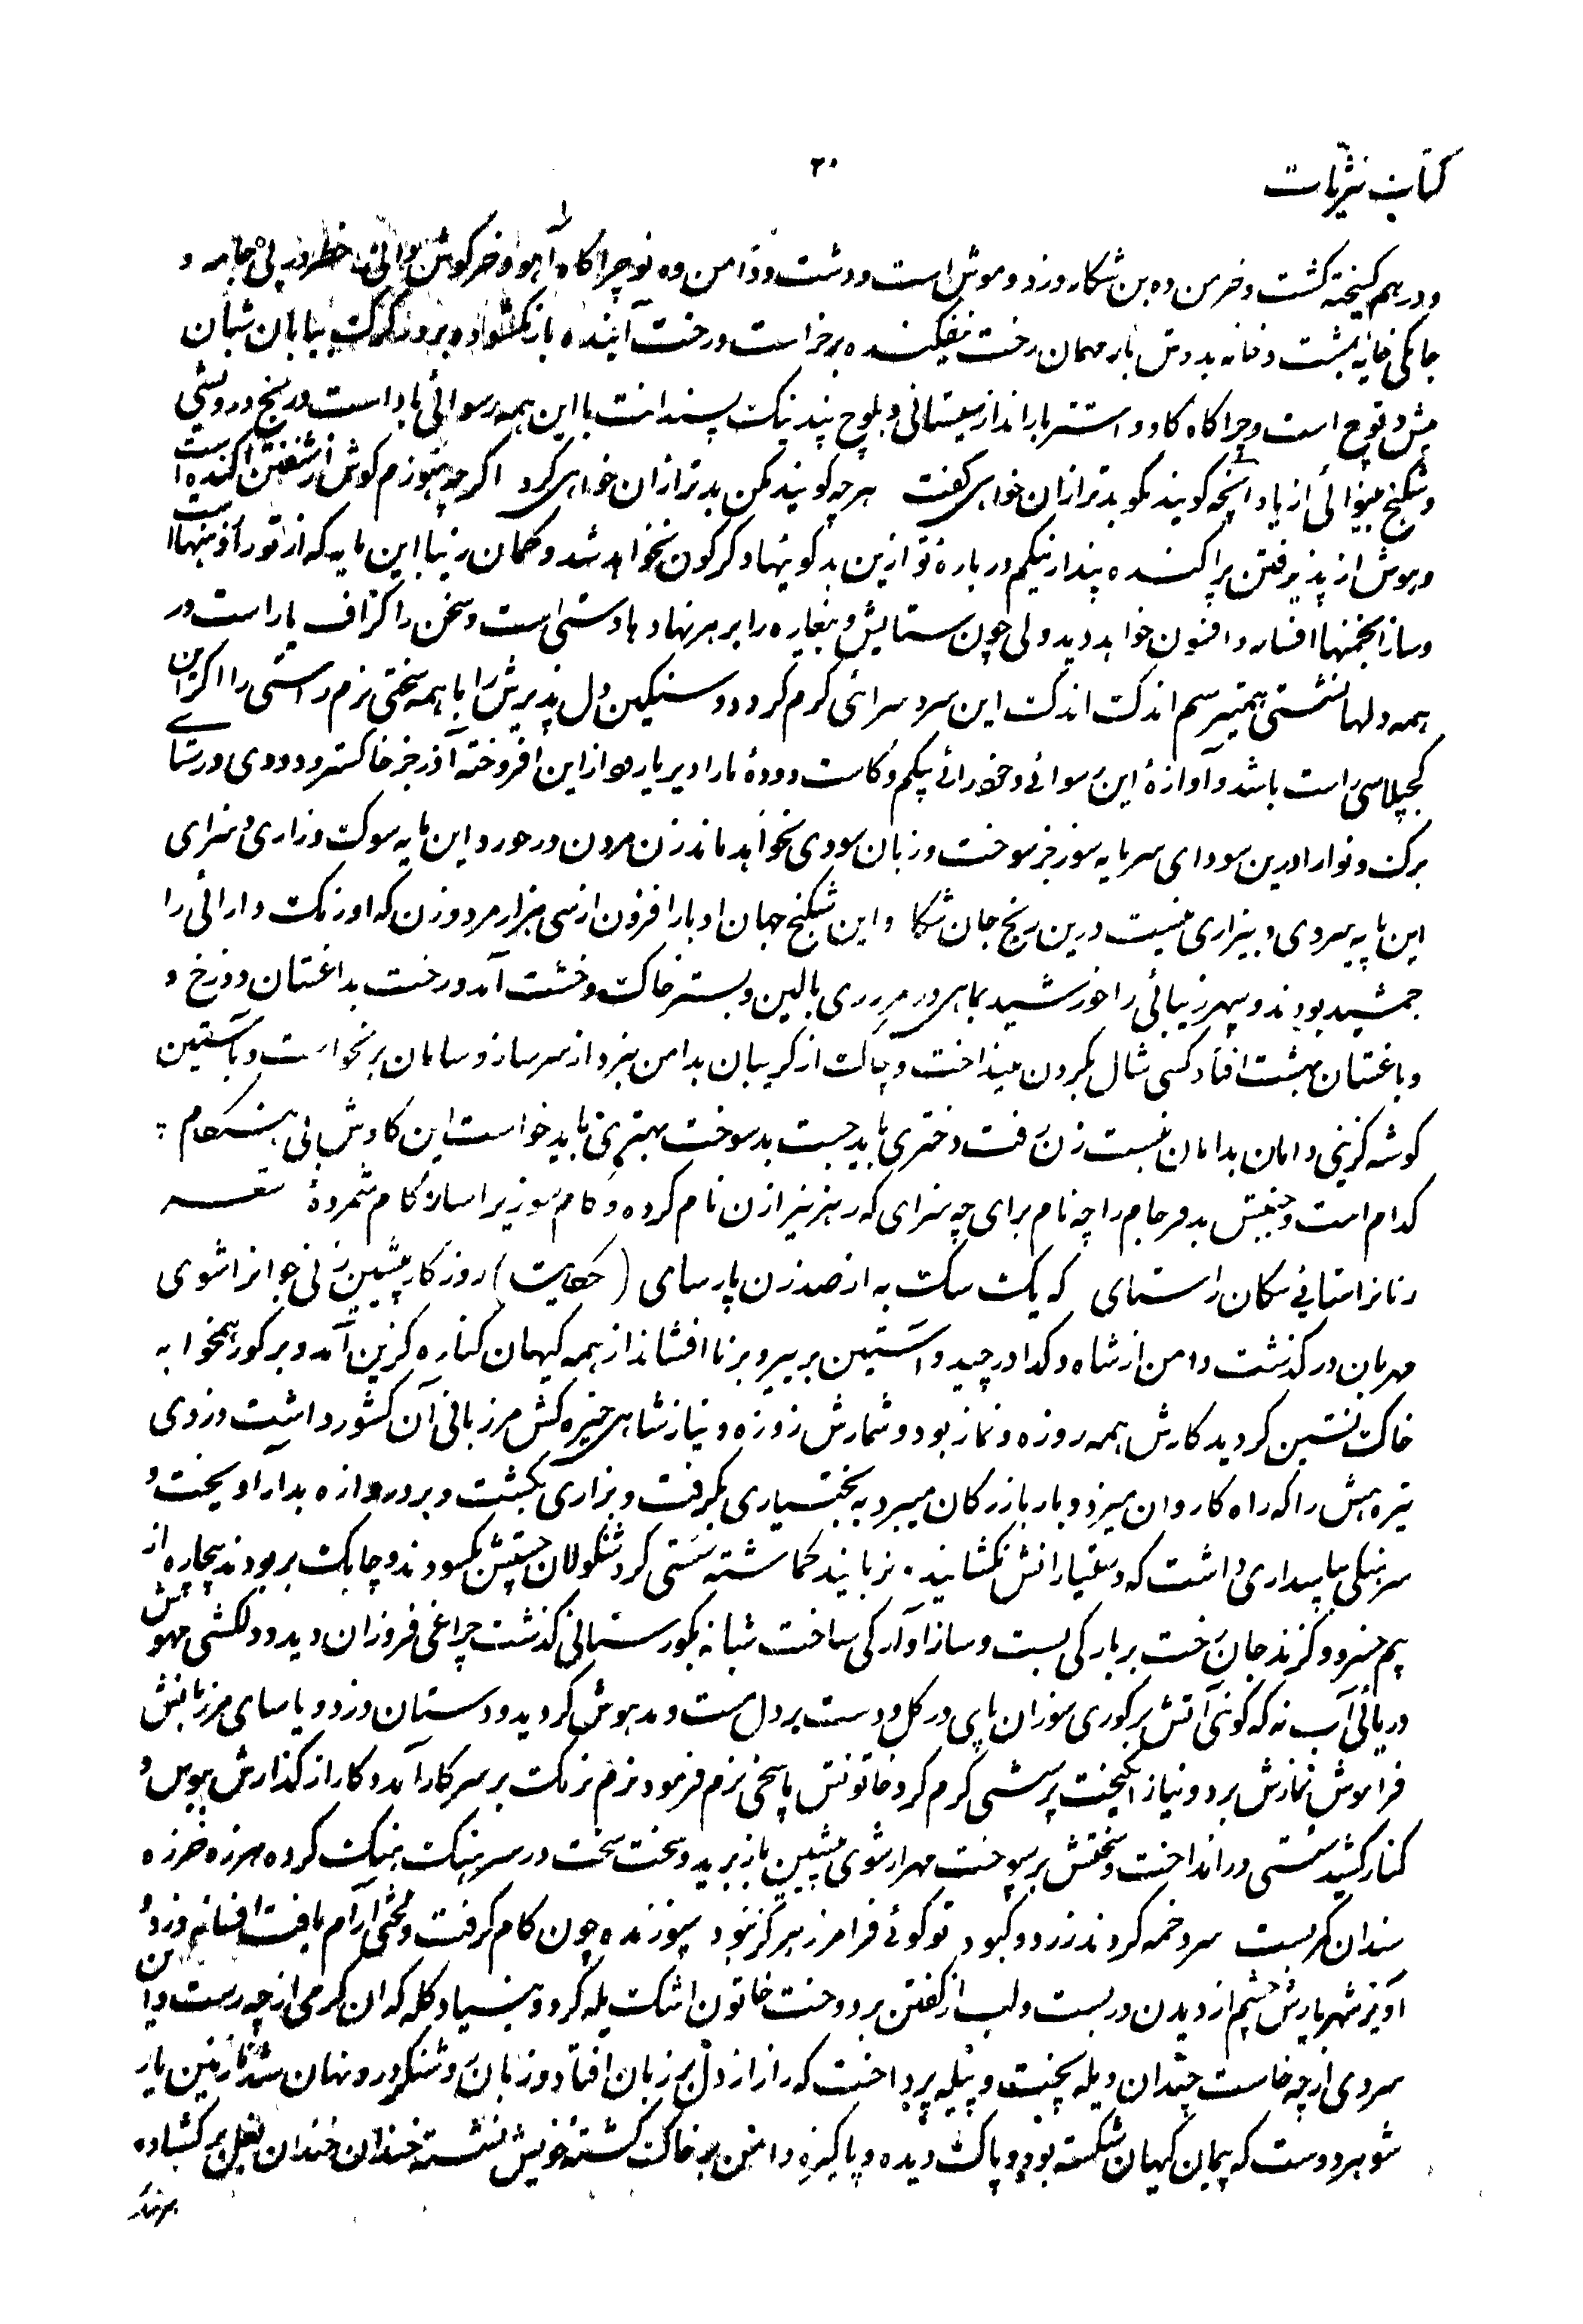 کتاب نثریات
۲۰
و درهم کیخته کشت و خرمن ده بن شکار وزد و موش است و دشت و دامن ده نو چراکاه آهو و خرکوش جامه و
جامکی خانه بشت و خانه بدوش بار مهمان رخت نیفکنده برخاست و رخت آینده باز نکشوده بیابان شبان
میش و توچ است و چراکاه کاو و استر بارانداز سیستانی و بلوچ پند نیک پسندانت با این همه رسوائی یاد است و رنج درویشی
و شکنج بینوائی از یاد آنچه کویند مکو بدتر ازان خواهی کفت هرچه کویند مکن بدتر ازان خواهی کرد اکرچه هنوزم کوش از شنفتن آکنده است
و هوش از پذیرفتن پراکنده پندار نیکم درباره تو ازین بد کوئیها دکرکون نخواهد شد و کمان زیبا این مایه که از تو
و ساز انجمنها افسانه و افسون خواهد دید ولی چون ستایش و بیغاره را بر هر نهاد هادستی است و سخن را کزاف یا راست در
همه دلها نشستی همیترسم اندک اندک این سرد سرائی کرم کردد و سنکین دل پذیرش را با همه سختی نرم راستی را اکر این
کجپلاسی راست باشد و آوازهٔ این رسوائی و بیکم و کاست دودهٔ ما را دیر یا زود از این افروخته آذر جز خاکستر و دودی
برک و نوا را درین سودای سرمایه سوز جز سوخت و زیان سودی نخواهد ماند زن مردن در خورد این مایه سوک و زاری و سزای
این پایه سردی و بیزاری نیست درین رنج جان شکا و این شکنج جهان اوبار افزون از سی هزار مرد و زن که اورنک دارائی را
جمشید بودند و سپهر زیبائی را خورشید بماهی در مر ری بالین و بستر خاک و خشت آمد و رخت بداغستان دوزخ و
و باغستان بهشت افتاد کسی شال بکردن نینداخت و چاک از کریبان بدامن نبرد از سر ساز و سامان برنخواست و باستین
کوشه کزینی دامان بدامان نبست زن رفت دختری باید جست بد سوخت بهتری باید خواست این کاوش بی هنکام
کدام است و جنبش بد فرجام را چه نام برای چه سزای که رهزنیرا زن نام کرده و کام سوزیرا ساز کام شمردهٔ شعر
زنانرا ستائی سکان را ستای که یک سک به از صد زن پارسای (حکایت) روزکار پیشین زنی جوانرا شوی
مهربان درکذشت دامن از شاه و کدا درچید و آستین بر پیر و برنا افشاند از همه کیهان کناره کزین آمد و بر کور همخوابه
خاک نشین کردید کارش همه روزه و نماز بود و شمارش زوزه و نیاز شاهی خیره کش مرزبانی آن کشور داشت دزدی
تیره هش را که راه کاروان میزد و بار بازرکان میبرد به بختیاری بکرفت و بزاری بکشت و بر دروازه بدار آویخت و
سرهنکی بپاسداری داشت که دستیارانش نکشایند. نربایند کماشته سستی کرد شنکولان بکسودند و چابک بربودند بیچاره از
بیم خسرو و کزند جان رخت بر بارکی بست و ساز آوارکی ساخت شبانه بکورستانی کذشت چراغی فروزان دید و دلکشی مهوش
دریائی آب نه که کوئی آتش بر کوری سوزان پای در کل و دست بر دل مست و مدهوش کردید و دستان دزد و یاسای مرزبانش
فراموش نمازش برد و نیاز انکیخت پرسشی کرم کرد خاتونش پاسخی نرم فرمود نرم نرمک بر سر کار آمد و کار از کذارش ببوس و
کنار کشید شستی در انداخت و سختش برسپوخت مهر از شوی پیشین باز برید و سخت سخت در سرهنک هنک کرده هرزه خرزه
سندان کربست سر دخمه کردند زرد و کبود تو کوئی فرامرز هرکز نبود سپوزنده چون کام کرفت و لختی آرام یافت افسانه دزد و
آویز شهریارش چشم از دیدن دربست و لب از کفتن بردوخت خاتون اشک یله کرد و بنیاد کله که آن کرمی از چه رست و این
سردی از چه خاست چندان ویله پخت و پیله پرداخت که راز از دل بر زبان افتاد و زبان روشنکر درونهان شد نازنین یار
شوهر دوست که پیمان کیهان شکسته بود و پاک دیده و پاکیزه دامن بر خاک کشته خویش نشسته خندان خندان لعل برکشاده